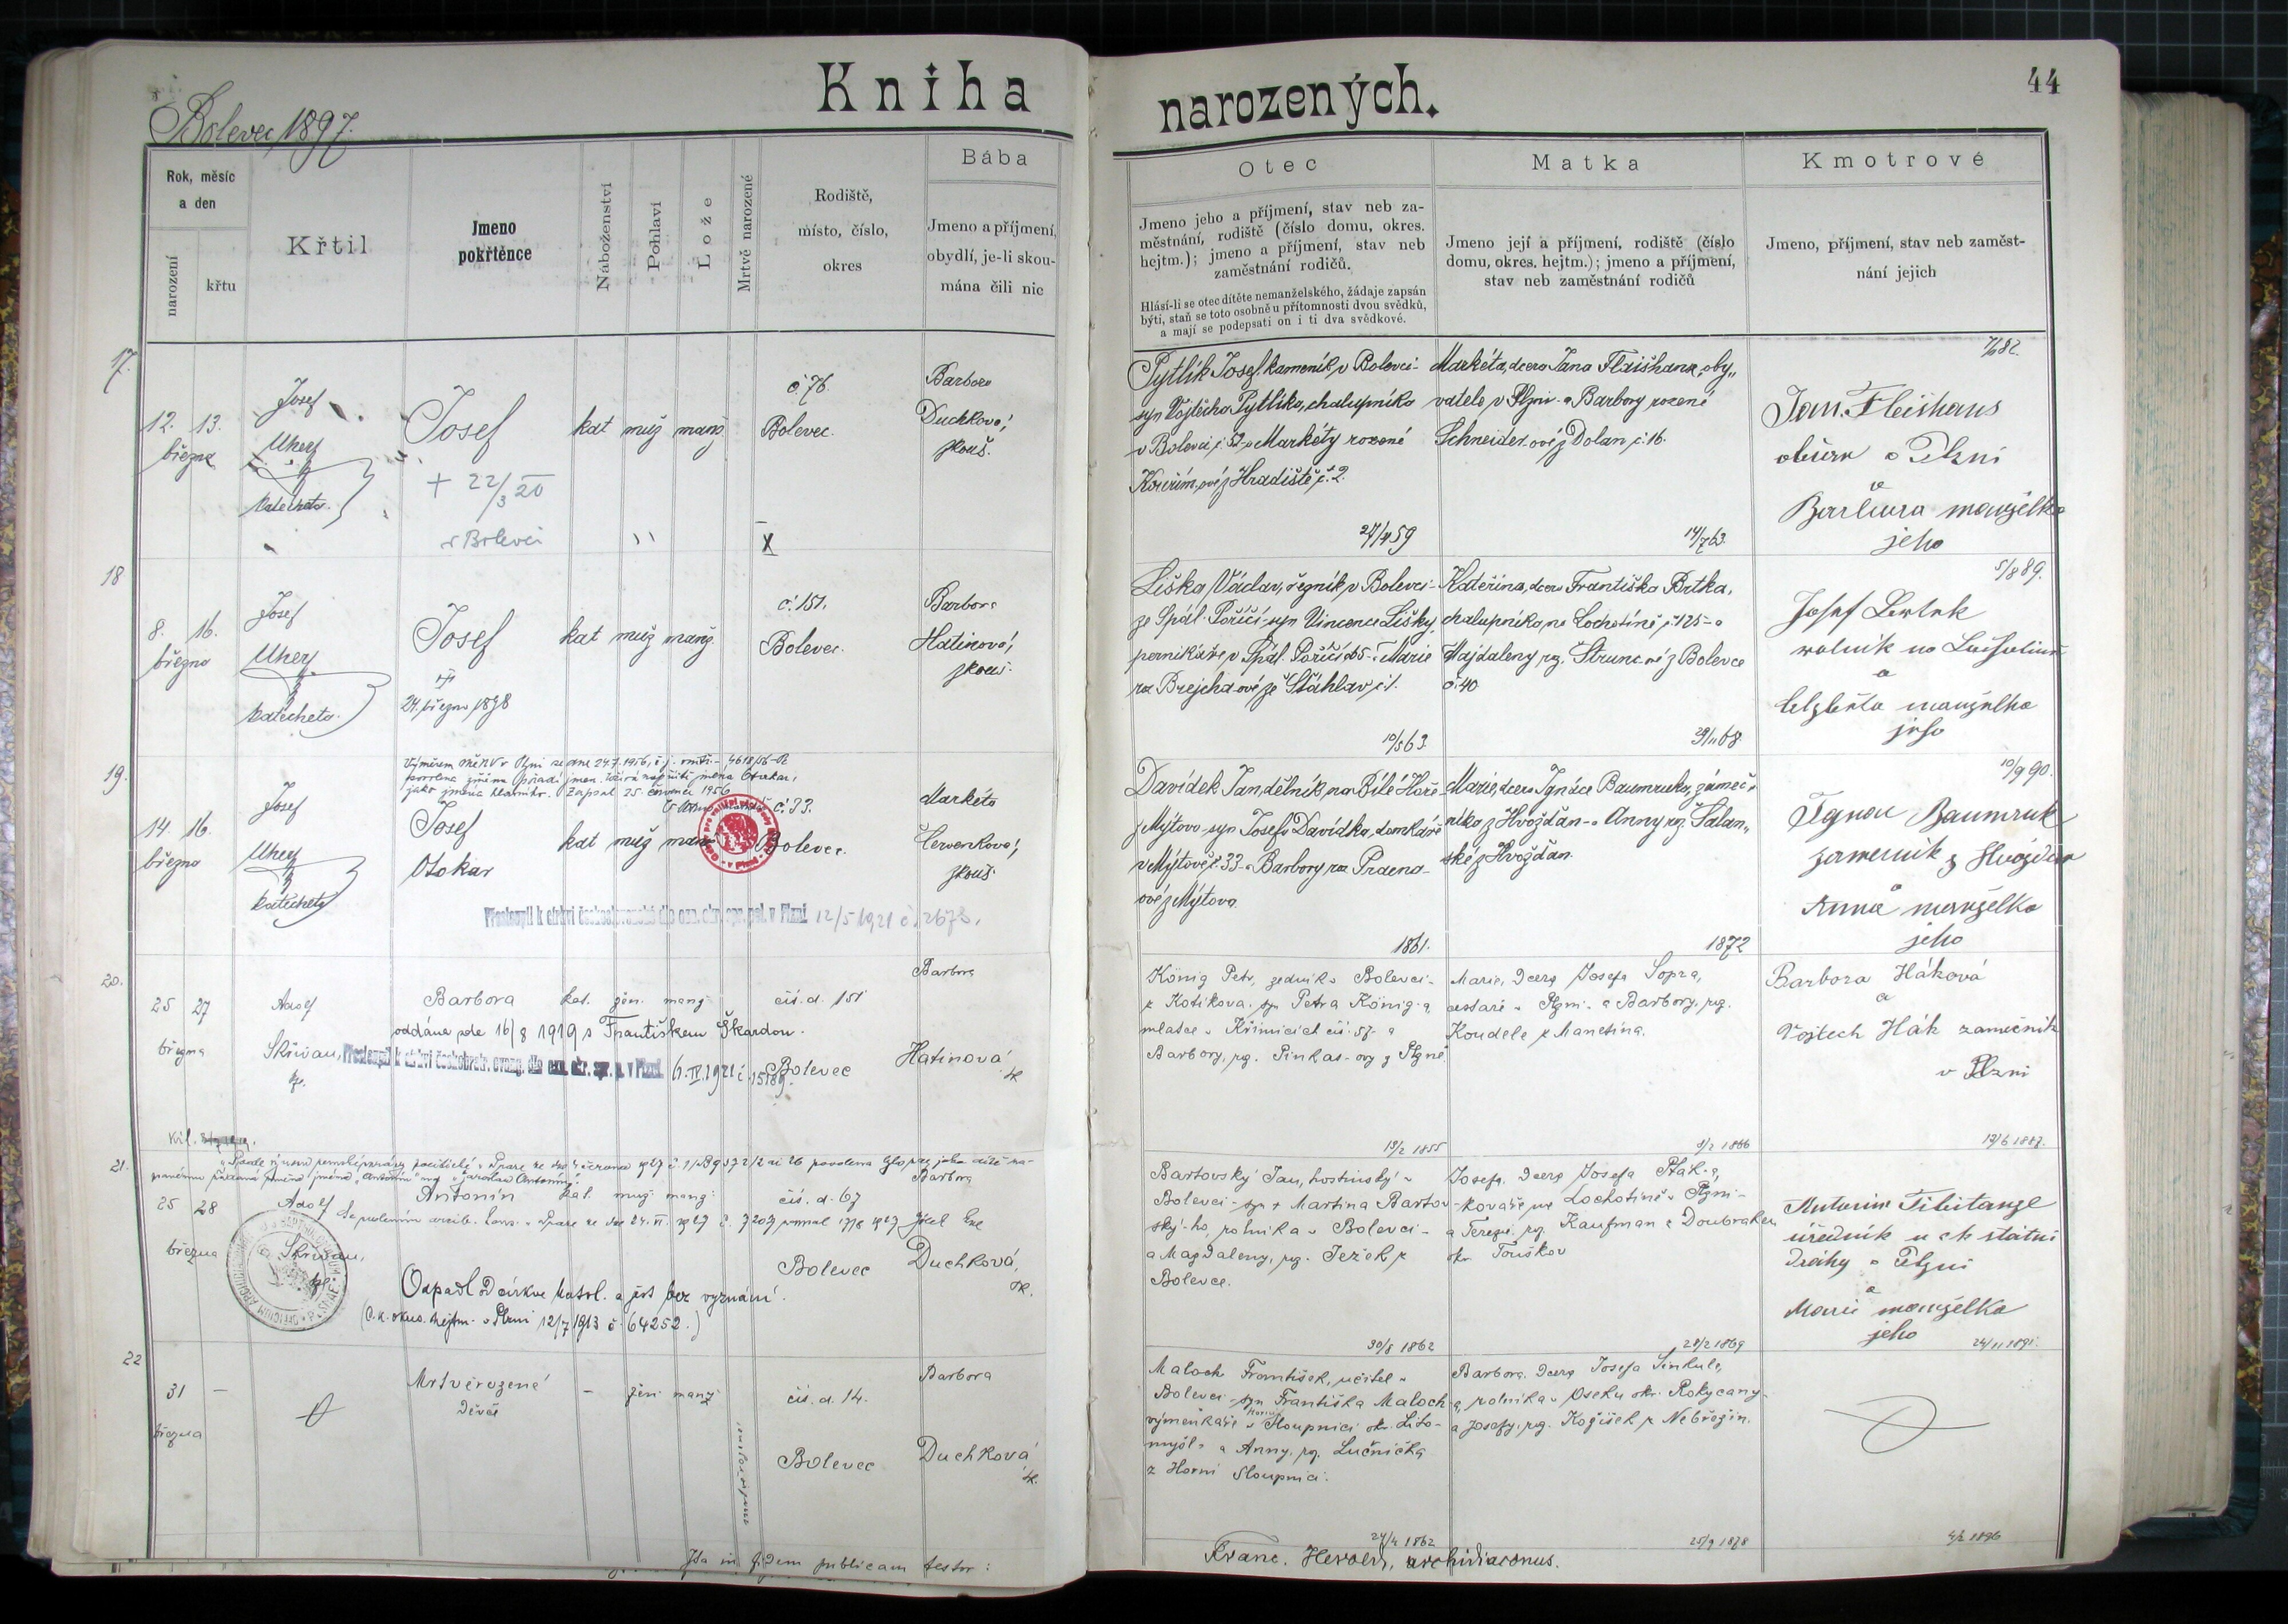 Bolevec, 1897.
Kniha
narozených.
44
Rok, měsíc
a den
narození
křtu
Křtil
Jmeno
pokřtěnce
Náboženství
Pohlaví
Lože
Mrtvě narozené
Rodiště,
místo, číslo,
okres
Bába
Jmeno a příjmení,
obydlí, je-li skou-
mána čili nic
Otec
Jmeno jeho a příjmení, stav neb za-
městnání, rodiště (číslo domu, okres.
hejtm.); jmeno a příjmení, stav neb
zaměstnání rodičů.
Hlásí-li se otec dítěte nemanželského, žádaje zapsán
býti, staň se toto osobně u přítomnosti dvou svědků,
a mají se podepsati on i ti dva svědkové.
Matka
Jmeno její a příjmení, rodiště (číslo
domu, okres. hejtm.); jmeno a příjmení,
stav neb zaměstnání rodičů
Kmotrové
Jmeno, příjmení, stav neb zaměst-
nání jejich
17.
12. 13.
března
Josef
Uherz
katecheta.
Josef
+ 22/3 20
v Bolevci
kat muž manž
č. 76.
Bolevec.
X
Barbora
Duchkova,
zkouš.
Pytlík Josef, kameník, v Bolevci-
syn Vojtěcha Pytlíka, chalupníka
v Bolevci č. 52-a Markéty rozené
ové z Hradiště, č. 2.
59
Markéta, dcera Jana Flaišhanse, oby„
vatele v Plzni - a Barbory rozené
Schneider-ové z Dolan, č. 16.
14/7 63.
82.
Jan Fleishans
v Plzni
Barbora manželka
jeho
18
8. 16.
března
Josef
Uherz
katecheta.
Josef
24. března 1898
kat muž manž
č. 151.
Bolevec.
Barbora
Hatinova,
zkouš.
Liška Václav, řezník, v Bolevci-
ze Spál. Poříčí-syn Vincence Lišky,
perníkáře v Spál. Poříčí č. 65-a Marie
roz Brejcha-ové ze Šťáhlav, č. 1.
10/5 63.
Kateřina, dcera Františka Brtka,
chalupníka, na Lochotíně, č. 125-a
Majdaleny roz. Strunc-ové z Bolevce
č. 40
68
5/8 89.
Josef
rolník na
a
manželka
jeho
19.
14. 16.
března
Josef
Uherz
katecheta
jako jména hlavního. Zapsal 25. července 1956
Josef
Otokar
kat muž manž
č. 33.
Bolevec.
Přestoupil k církvi československé dle ozn. okr. spr. pol. v Plzni 12/5 1921 č. 2678.
Markéta
Červenkova,
zkouš.
Davídek Jan, dělník, na Bílé Hoře-
z Mýtova-syn Josefa Davídka, domkáře
v Mýtově č. 33-a Barbory roz
ové z Mýtova
1861.
Marie, dcera Ignáce Baumruka, zámeč„
níka z Hvožďan-a Anny roz. Šalan„
ské z Hvožďan.
1872
10/9 90.
Ignác Baumruk
zámečník z Hvožďan
a
Anna manželka
jeho
20.
25 27
března
Adolf
Skřivan,
kp.
Barbora kat. žen. manž
oddána zde 16/8 1919 s Františkem Škardou.
Přestoupil k církvi českobratr. evang. dle ozn. okr. spr. p. v Plzni 6. IV. 1921 č. 15189.
čís. d. 151
Bolevec
Barbora
Hatinová,
zk.
König Petr, zedník v Bolevci-
z Kotíkova, syn Petra König-a,
v Křimicích čís. 57- a
Barbory, roz. Pinkas-ovy z Plzně.
13/2 1855
Marie, dcera Josefa Sopra,
cestáře v Plzni - a Barbory, roz.
Koudele z Manětína.
8/2 1866
Barbora Háková
a
Vojtěch Hák zámečník
v Plzni
12/6 1887.
21.
25 28
března
Adolf
Skřivan,
kpl.
Antonín kat. muž. manž.
Odpadl od církve katol. a jest bez vyznání.
(C. k. okres. hejtm. v Plzni 12/7 1913 č. 64252.)
čís. d. 67
Bolevec
Barbora
Duchková,
zk.
Bartovský Jan, hostinský v
Bolevci - syn + Martina Bartov-
ský-ho, rolníka v Bolevci -
a Magdaleny, roz. Ježek z
Bolevce.
30/8 1862
Josefa, dcera Josefa Pták-a,
kováře na Lochotíně u Plzni-
a Terezie, roz. Kaufman z Doubravky
okr. Touškov
28/2 1869
Antonín Tibitanzl
úředník u c k státní
dráhy v Plzni
a
Marie manželka
jeho
24/11 1891.
22
31 -
března
Mrtvěrozené
děvče
- žen. manž
mrtvěrozené.
čís. d. 14.
Bolevec
Barbora
Duchková,
zk.
Maloch František, učitel v
Bolevci - syn Františka Maloch-a,
výměnkáře v Horní Sloupnici okr. Lito-
myšl - a Anny, roz. Lučnička
z Horní Sloupnici.
24/4 1862
Barbora, dcera Josefa Sinkule,
rolníka v Oseku okr. Rokycany-
a Josefy, roz. Kožíšek z Nebřežin.
25/9 1878
4/2 1896
Ita in fidem publicam testor:
Franc. Herold, archidiaconus.